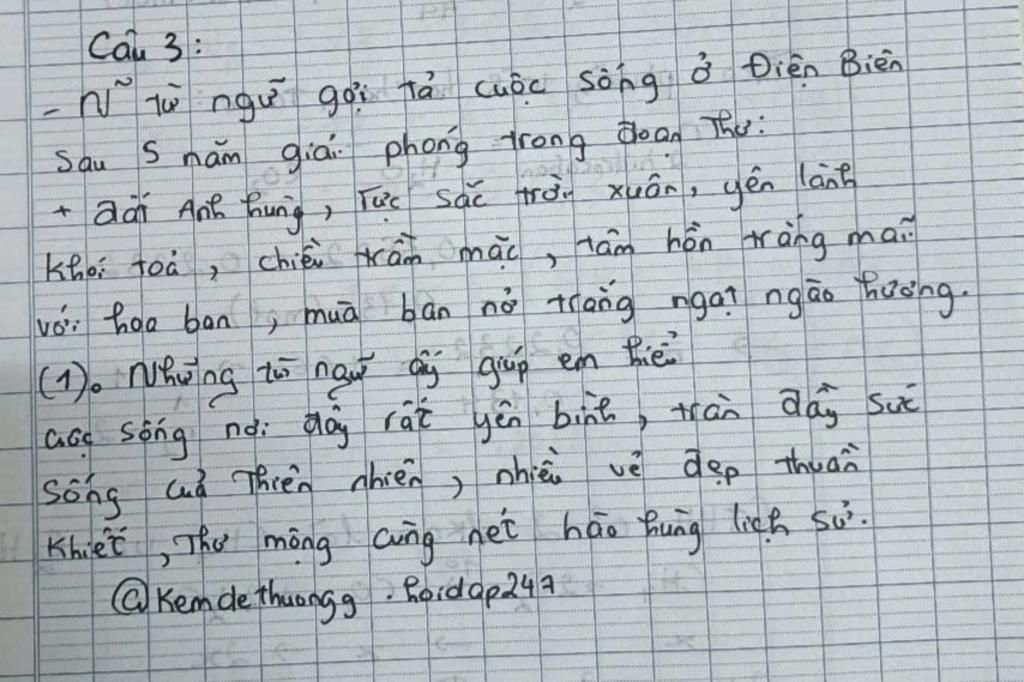 Câu 3:
- N~ từ ngữ gợi tả cuộc sống ở Điện Biên
sau 5 năm giải phóng trong đoạn thơ:
+ đất Anh hùng, rực sắc trời xuân, yên lành
khói toả, chiều trầm mặc, tâm hồn trắng mãi
với hoa ban, mùa ban nở trắng ngạt ngào hương.
(1). Những từ ngữ ấy giúp em hiểu
cuộc sống nơi đây rất yên bình, tràn đầy sức
sống của thiên nhiên, nhiều vẻ đẹp thuần
khiết, thơ mộng cùng nét hào hùng lịch sử.
@Kemdethuongg . hoidap247